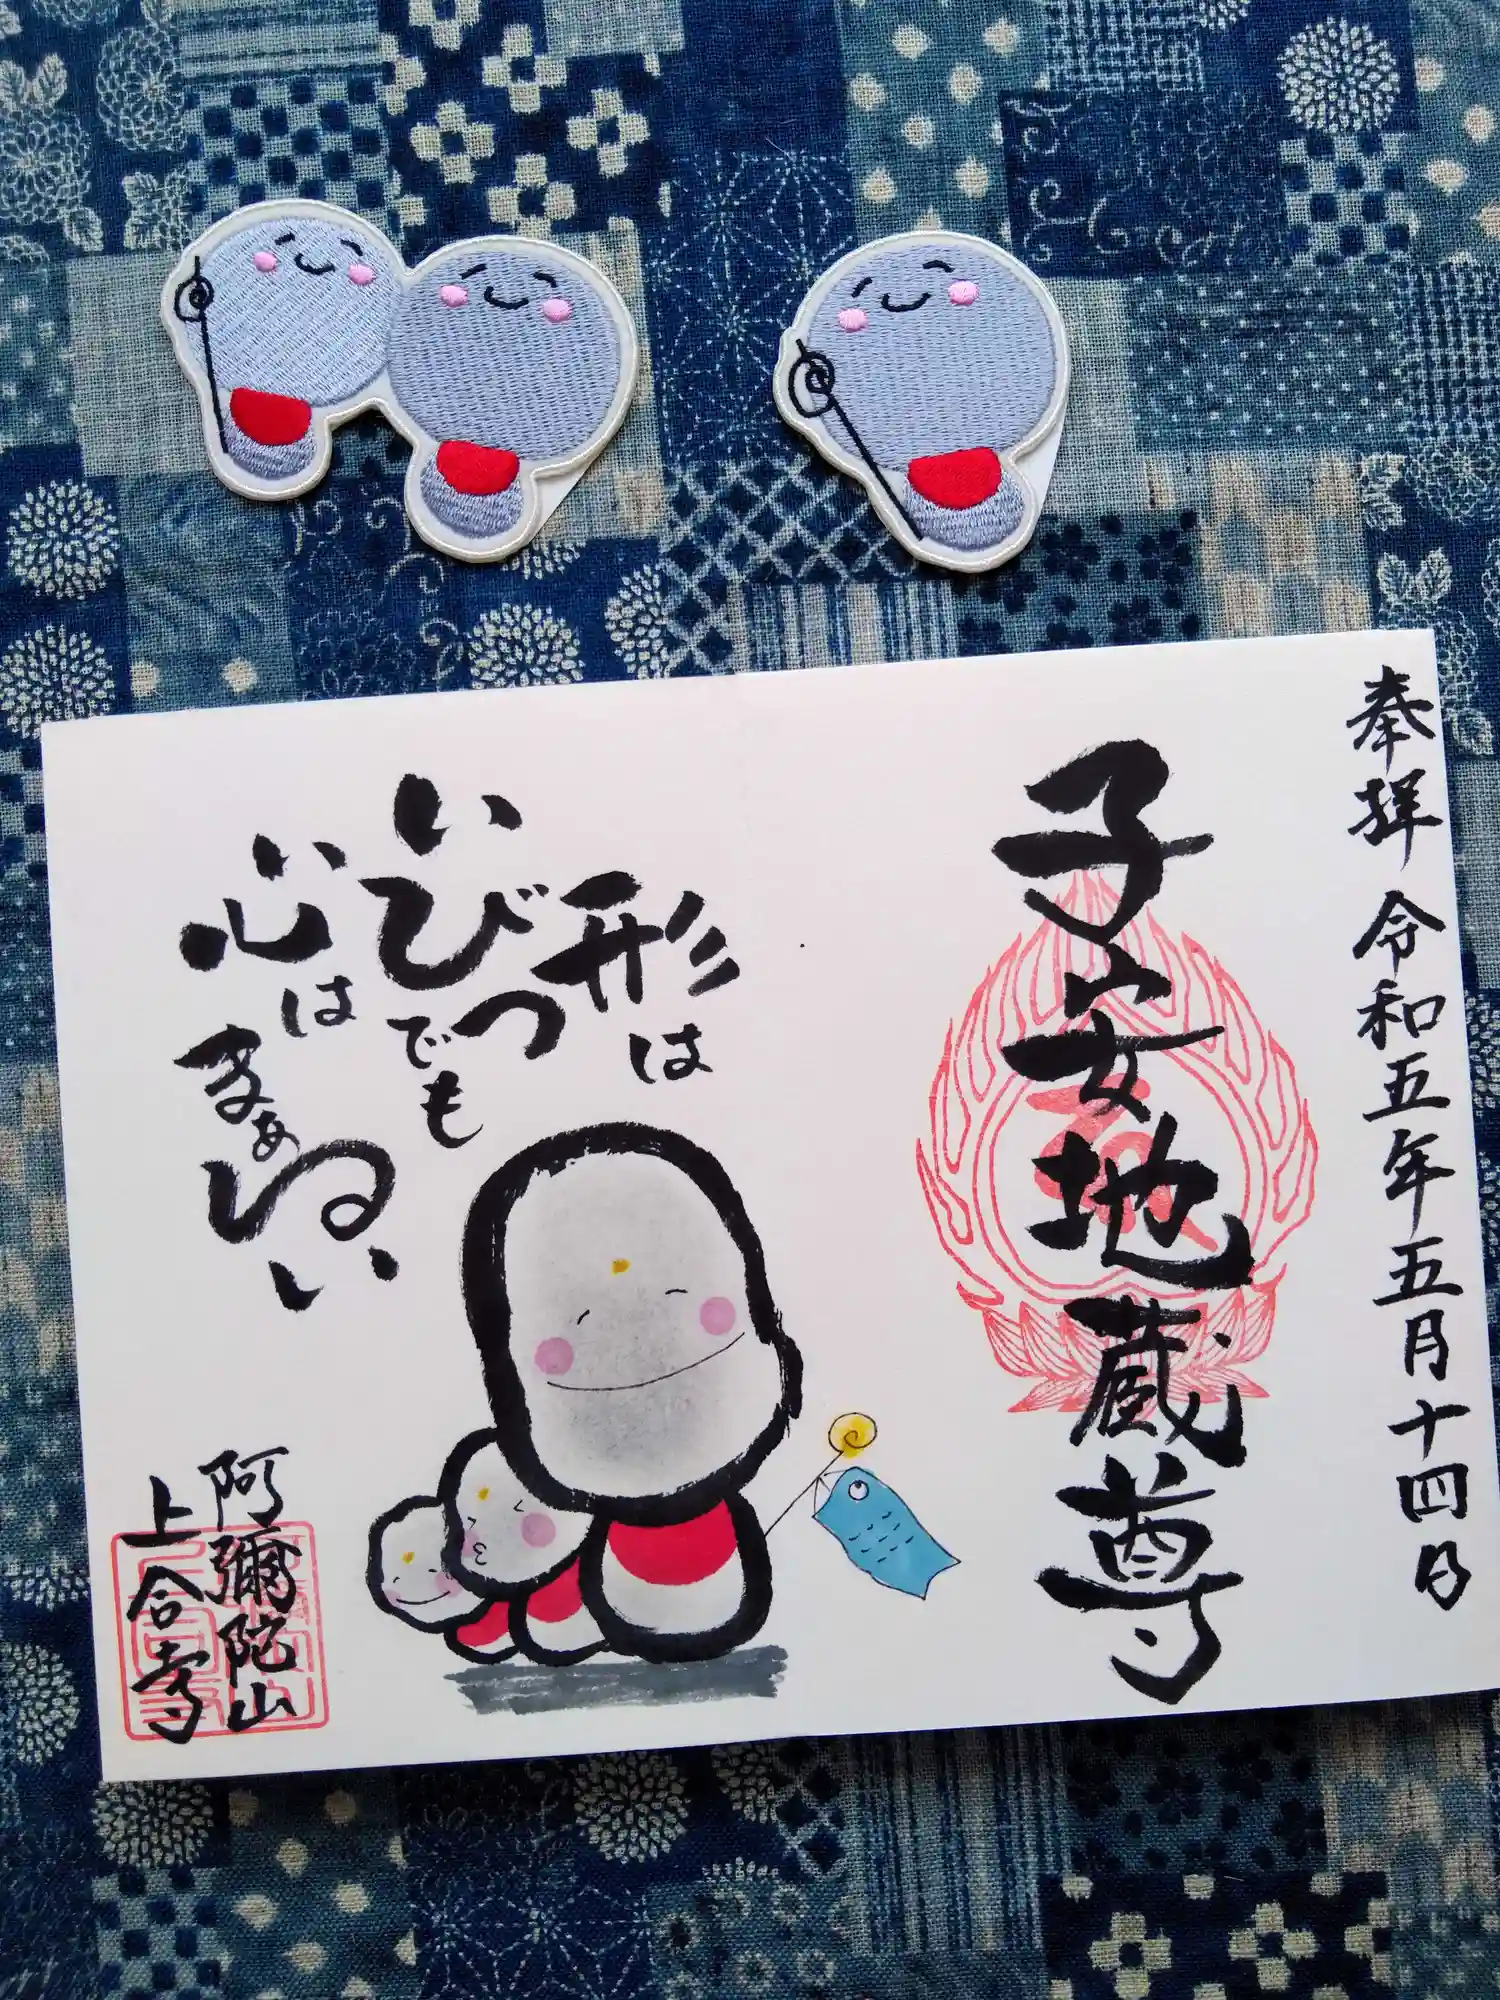 奉拝 令和五年五月十四日
子安地蔵尊
形は
いびつ
でも
心は
まぁるい
阿彌陀山
上合寺